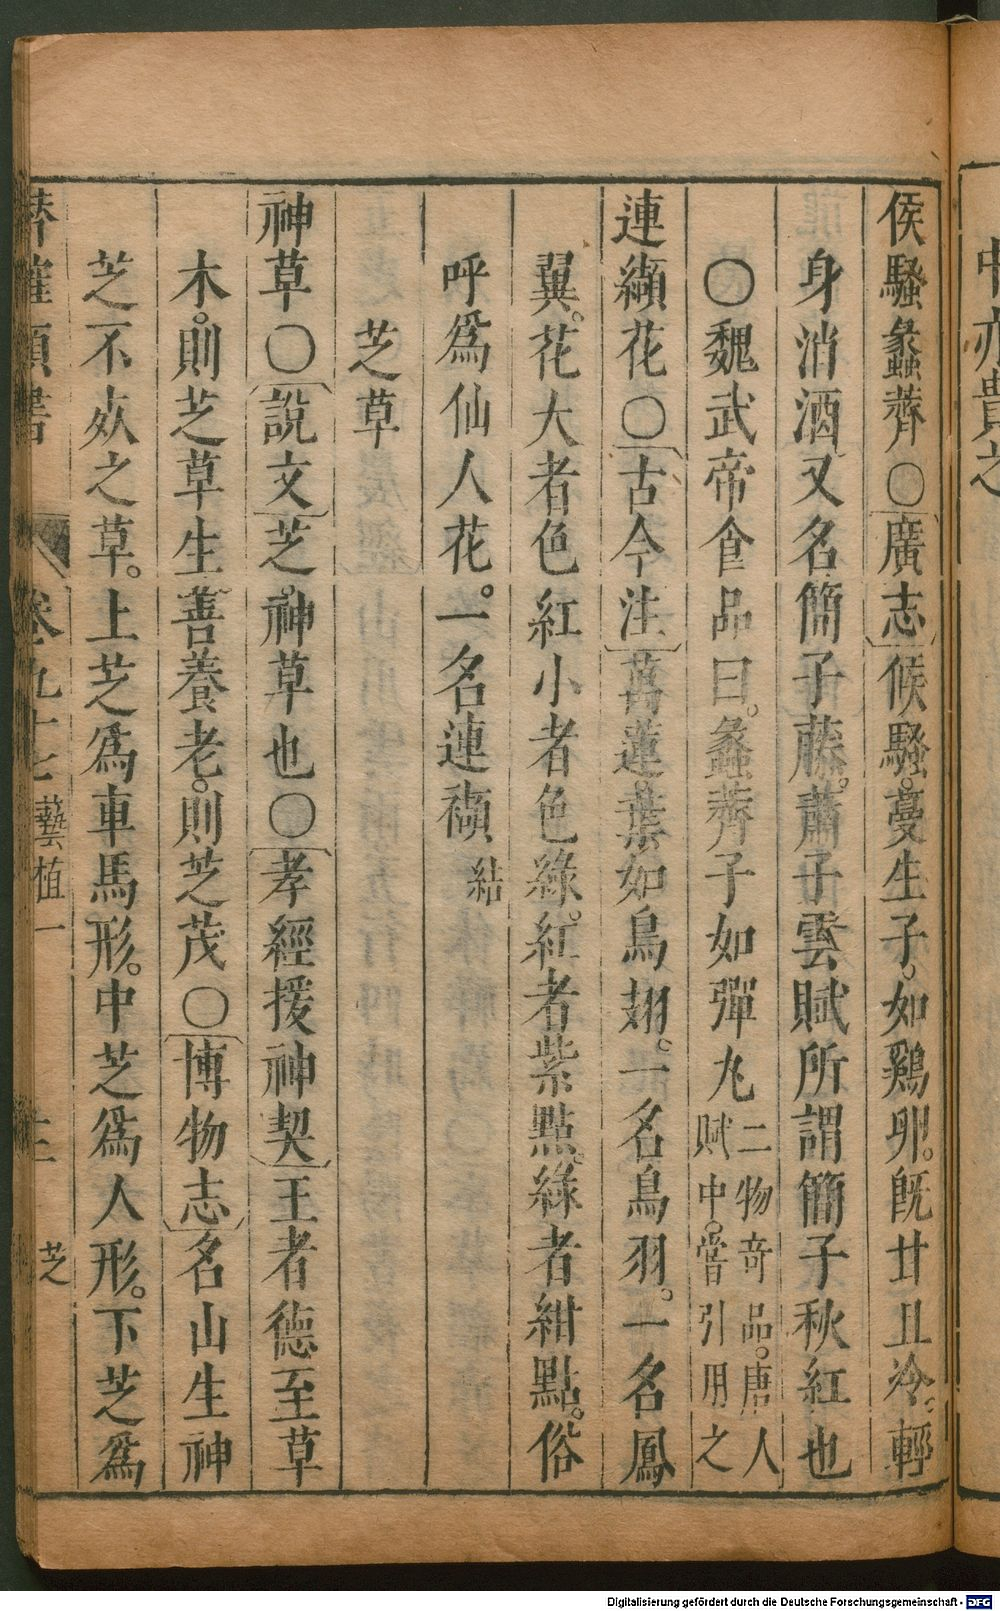 侯騷蠡薺〇廣志候騷。蔓生子。如鷄卵。旣甘且冷。輕
身消酒又名簡子藤。蕭子雲賦所謂簡子秋紅也
〇魏武帝食品曰。蠡薺子如彈丸二物竒品。唐人賦中。嘗引用之
連纈花〇古今注萬蓮。葉如鳥翅。一名鳥羽。一名鳳
翼。花大者色紅小者色綠。紅者紫點。綠者紺點。俗
呼爲仙人花。一名連纈結
芝草
神草〇說文芝。神草也〇孝經援神契王者德至草
木。則芝草生善養老。則芝茂〇博物志名山生神
芝不死之草。上芝爲車馬形。中芝爲人形。下芝爲
類書 卷九十七 藝植一 芝
中亦貴之
Digitalisierung gefördert durch die Deutsche Forschungsgemeinschaft - DFG